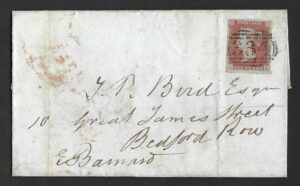 POSTAGE
J. P. Bird Esqr
10 Great James Street
Bedford Row
E Barnard